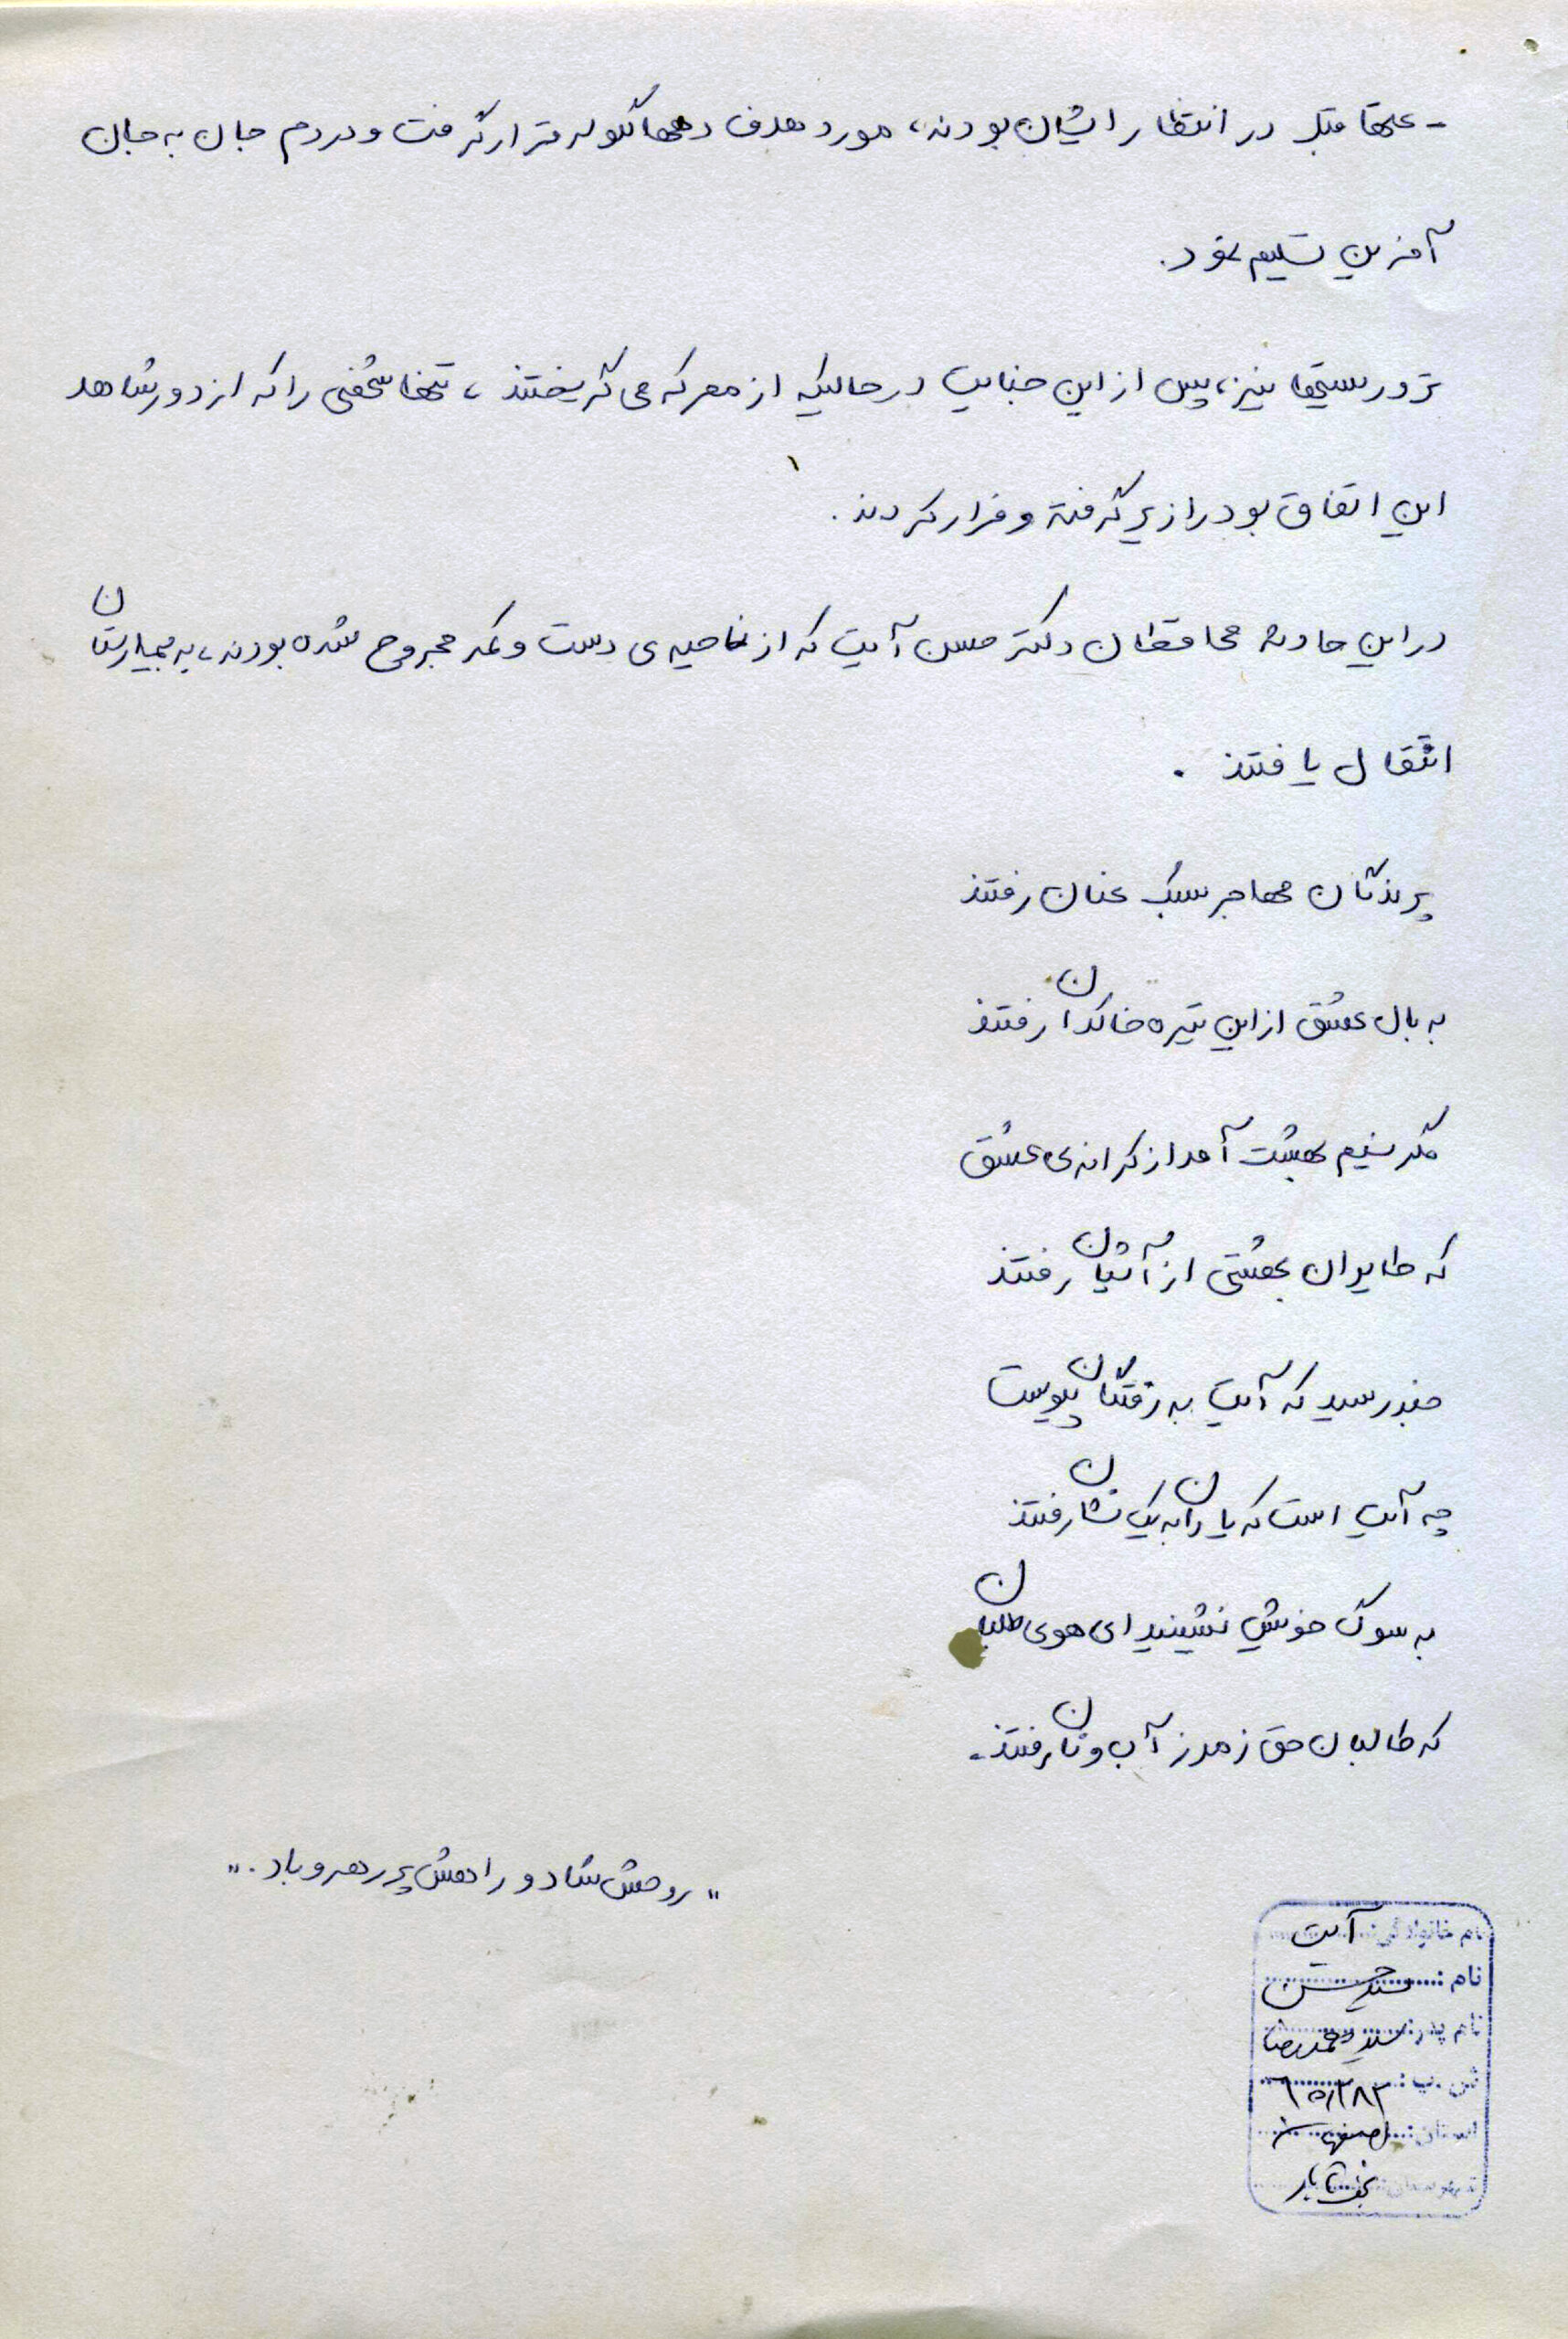 - عتها قبل در انتظار ایشان بودند، مورد هدف دهها گلوله قرار گرفت و در دم جان به جان
آفرین تسلیم نمود.
تروریستها نیز، پس از این جنایت در حالیکه از معرکه می گریختند، تنها شخصی را که از دور شاهد
این اتفاق بود را زیر گرفته و فرار کردند.
در این حادثه محافظان دکتر حسن آیت که از ناحیه ی دست و کمر مجروح شده بودند، به بیمارستان
انتقال یافتند.
پرندگان مهاجر سبک عنان رفتند
به بال عشق از این تیره خاکدان رفتند
مگر نسیم بهشت آمد از کرانه ی عشق
که طایران بهشتی از آشیان رفتند
خبر رسید که آیت به رفتگان پیوست
چه آیت است که یاران به یک نشان رفتند
به سوگ خویش نشینید ای هوی طلبان
که طالبان حق ز مرز آب و نان رفتند.
"روحش شاد و راهش پر رهرو باد."
نام خانوادگی: آیت
نام: سید حسن
نام پدر: سید محمدرضا
ش.پ: ۶۵۱۲۸۲
استان: اصفهان
شهرستان: نجف آباد